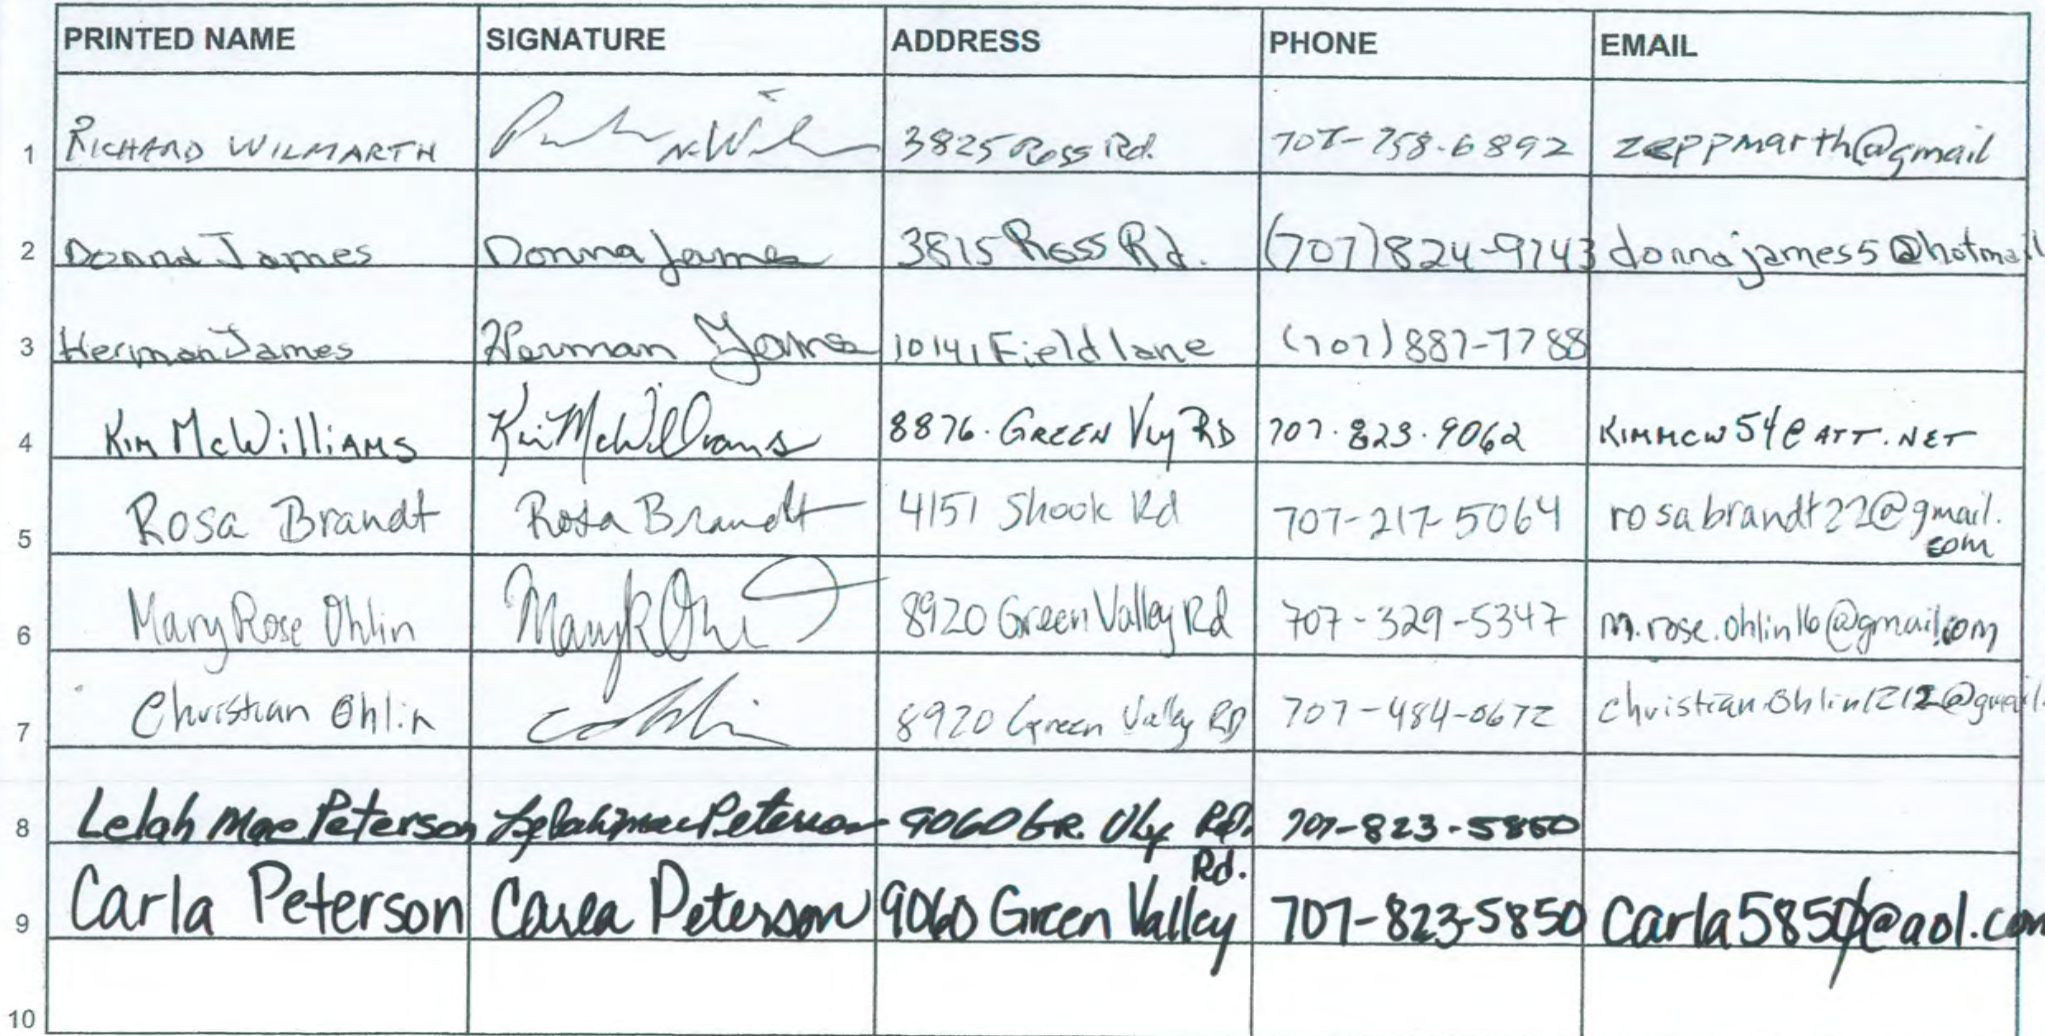 PRINTED NAME SIGNATURE ADDRESS PHONE EMAIL
1 RICHARD WILMARTH 3825 Ross Rd. 707-758-6892 zeppmarth@gmail
2 Donna James Donna James 3815 Ross Rd. (707)824-9743 donnajames5@hotmail
3 Herman James Herman James 10141 Field lane (707)887-7788
4 Kim McWilliAMS Kim McWilliams 8876 GREEN Vly RD 707.823.9062 KIMMCW54@ATT.NET
5 Rosa Brandt Rosa Brandt 4151 Shook Rd 707-217-5064 rosabrandt22@gmail.
com
6 Mary Rose Ohlin 8920 Green Valley Rd 707-329-5347 m.rose.ohlin16@gmail.com
7 Christian Ohlin 8920 Green Valley RD 707-484-0672 christian.ohlin1212@gmail.
8 Lelah Mae Peterson Lelah Mae Peterson 9060 GR. Vly Rd. 707-823-5850
Rd.
9 Carla Peterson Carla Peterson 9060 Green Valley 707-823-5850 Carla5850@aol.com
10